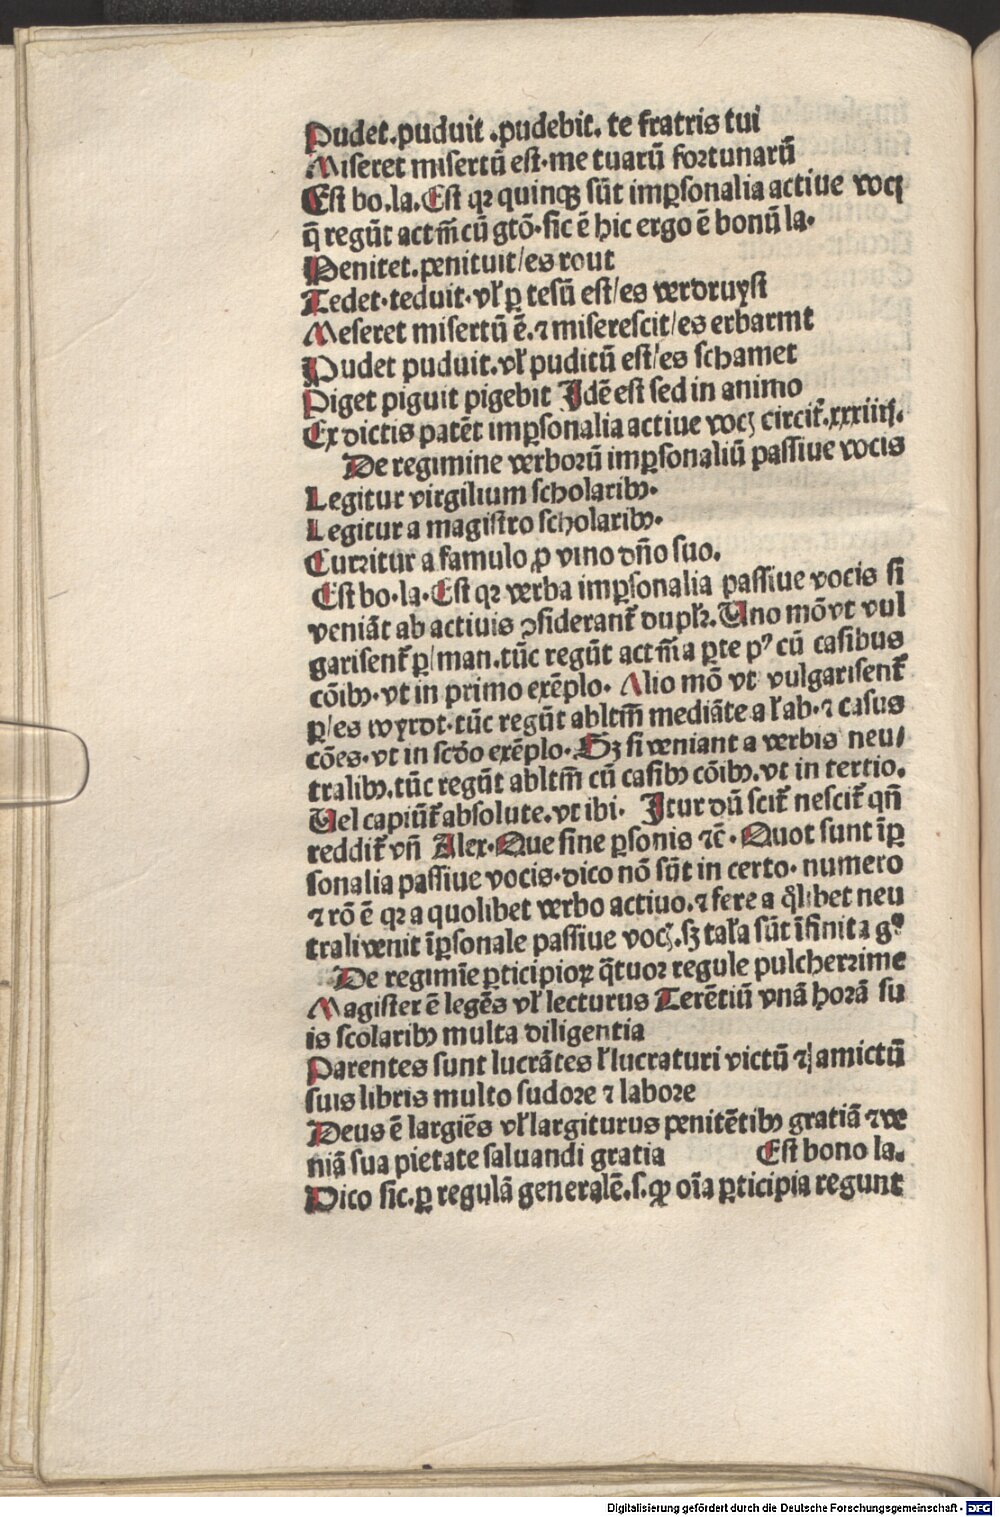 Pudet.puduit .pudebit. te fratris tui
Miseret misertū est·me tuarū foꝛtunarū
Est bo.la.Est qꝛ quinqꝫ sūt imꝑsonalia actiue vocꝭ
q̄ regūt actm̄ cū gtō·sic ē hic ergo ē bonū la·
Penitet.penituit/es rout
Tedet·teduit·vł ꝑ tesū est/es verdruyst
Meseret misertū ē.⁊ miserescit/es erbarmt
Pudet puduit.vł puditū est/es schamet
Piget piguit pigebit Idē est sed in animo
Ex dictis patēt imꝑsonalia actiue vocꝭ circit̄.xxxiiij.
De regimine verborū imꝑsonaliū passiue vocis
Legitur virgilium scholaribꝫ·
Legitur a magistro scholaribꝫ·
Curꝛitur a famulo ꝓ vino dn̄o suo.
Est bo·la·Est qꝛ verba imꝑsonalia passiue vocis si
veniāt ab actiuis ꝯsiderant̄ duplꝛ.Uno mō vt vul
garisent̄ ꝑ/man.tūc regūt actm̄ a ꝑte pꝰ cū casibus
cōibꝫ·vt in primo exēplo· Alio mō vt vulgarisent̄
ꝑ/es wyrdt·tūc regūt abltm̄ mediāte a ł ab·⁊ casus
cōes·vt in scdo exēplo·Sꝫ si veniant a verbis neu/
tralibꝫ.tūc regūt abltm̄ cū casibꝫ cōibꝫ.vt in tertio.
Uel capiūt̄ absolute.vt ibi· Itur dū scit̄ nescit̄ qn̄
reddit̄ vn̄ Alex·Que sine ꝑsonis ⁊c̄·Quot sunt īꝑ
sonalia passiue vocis·dico nō sūt in certo· numero
⁊ rō ē qꝛ a quolibet verbo actiuo.⁊ fere a qͦlibet neu
trali venit īꝑsonale passiue vocꝭ.sꝫ tał̄a sūt īfinita gͦ
De regimīe ꝑticipioꝝ q̄tuor regule pulcherꝛime
Magister ē legēs vł lecturus Terētiū vnā horā su
is scolaribꝫ multa diligentia
Parentes sunt lucrātes ł lucraturi victū ⁊ amictū
suis libris multo sudoꝛe ⁊ laboꝛe
Deus ē largiēs vł largiturus penitētibꝫ gratiā ⁊ ve
niā sua pietate saluandi gratia Est bono la.
Dico sic.ꝑ regulā generalē.s.ꝙ oīa ꝑticipia regunt
Digitalisierung gefördert durch die Deutsche Forschungsgemeinschaft - DFG